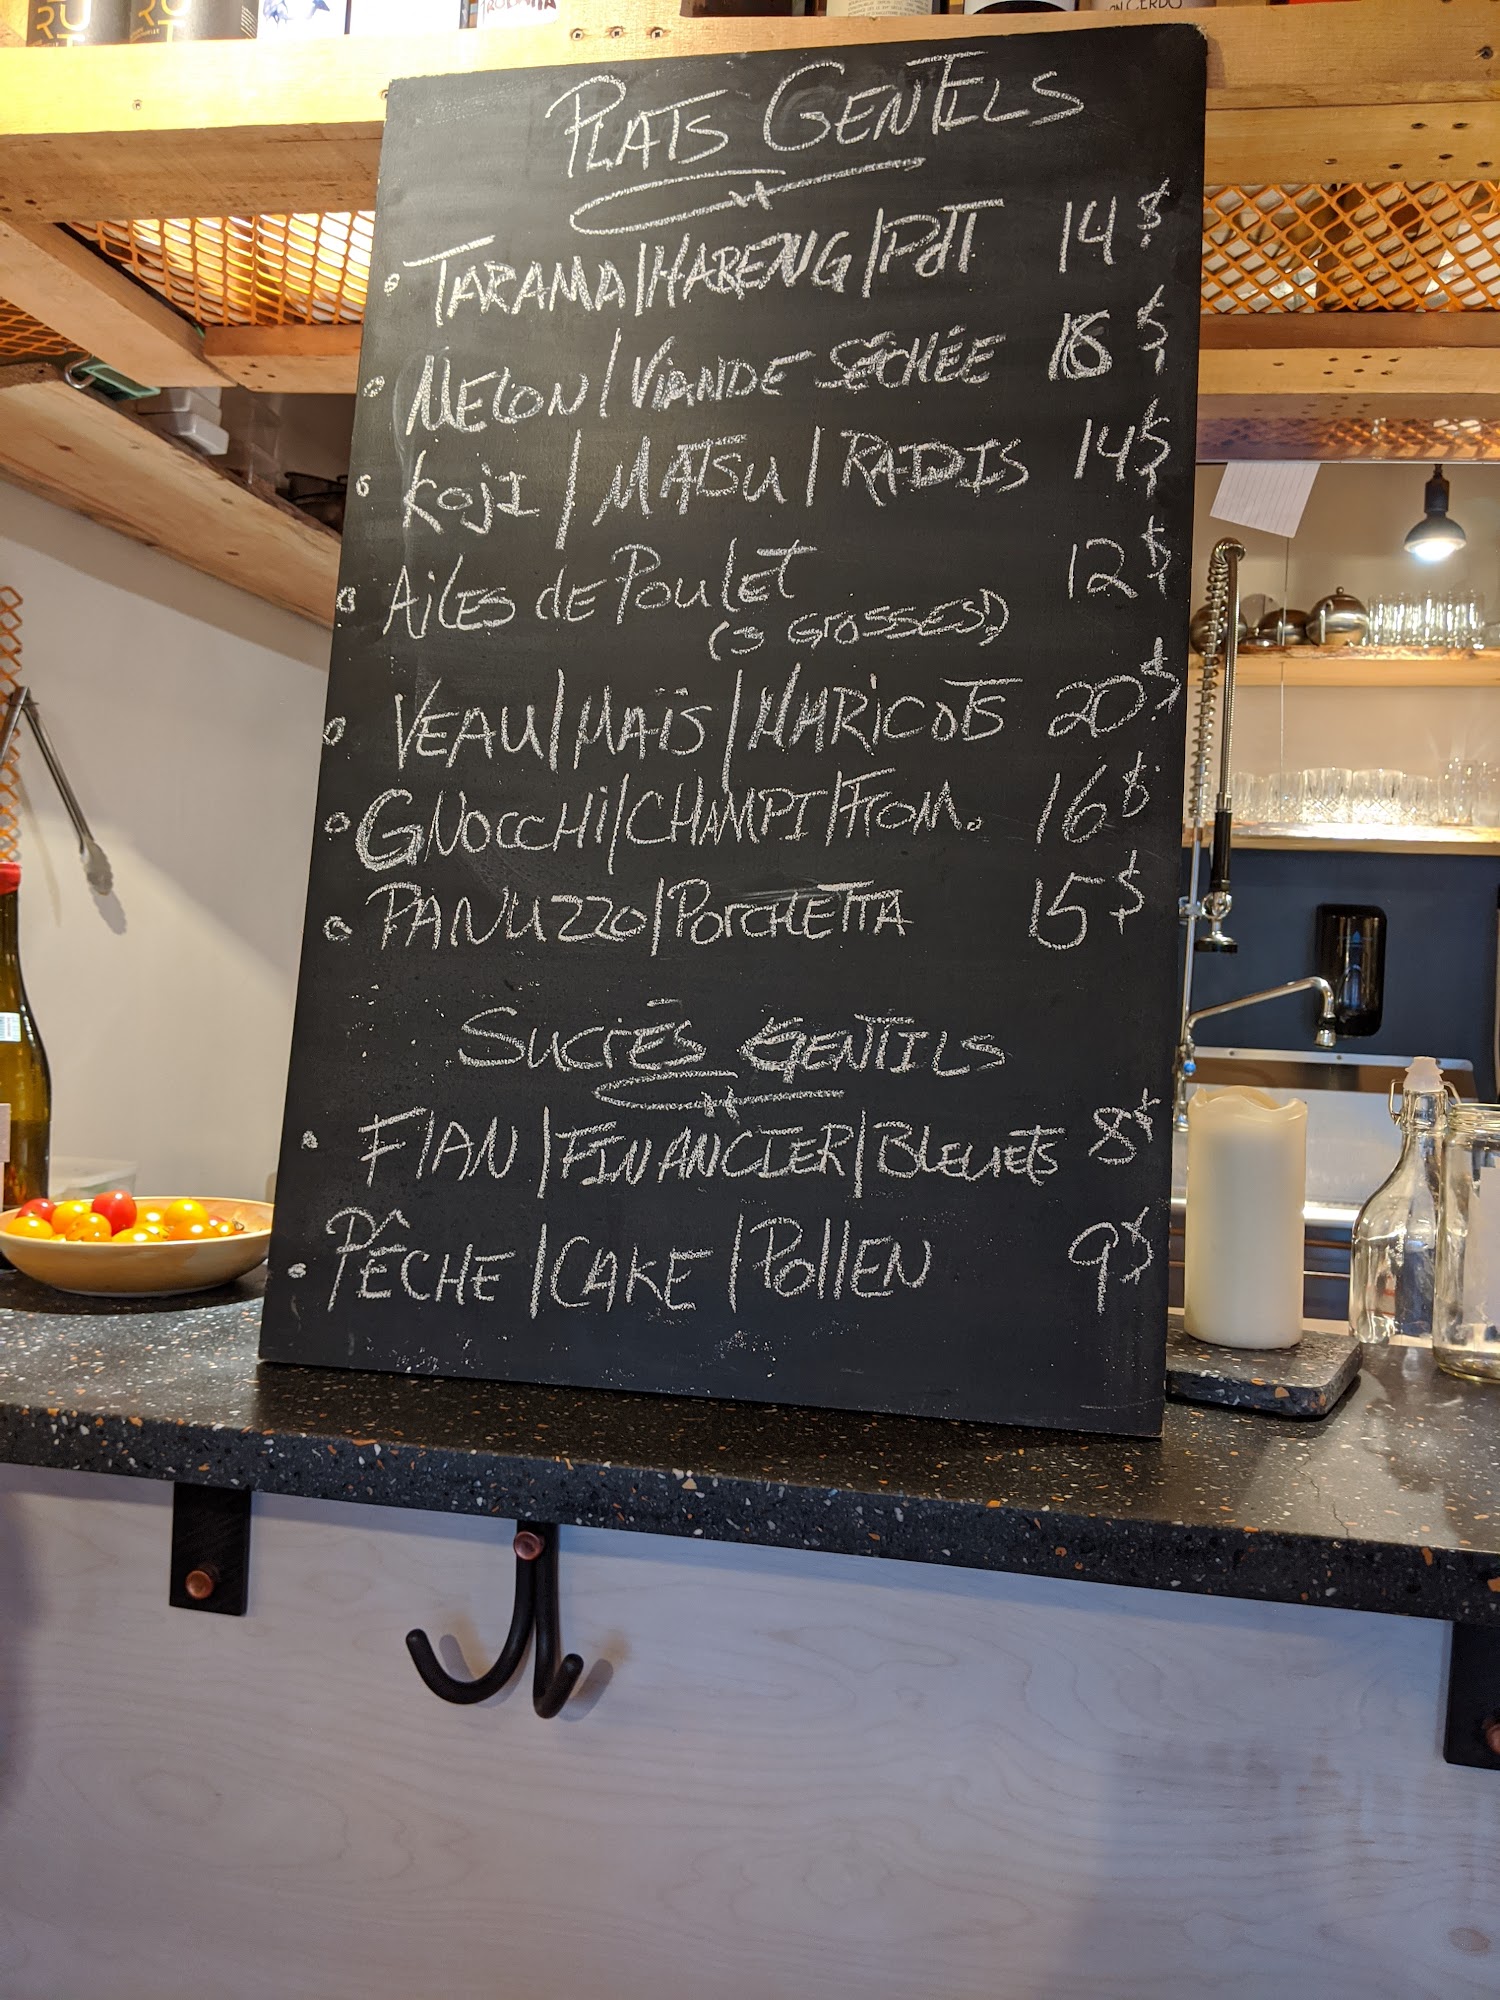 PLATS GENTILS
TARAMA/HARENG/PdT 14$
MELON/VIANDE SÉCHÉE $
KOJI/MATSU/RADIS 14$
AILES de POULET 12$
(3 GROSSES!)
VEAU/MAÏS/HARICOTS 20$
GNOCCHI/CHAMPI/FROM. 16$
PANUZZO/PORCHETTA 15$
SUCRÉS GENTILS
FLAN/FINANCIER/BLEUETS 8$
PÊCHE/CAKE/POLLEN 9$